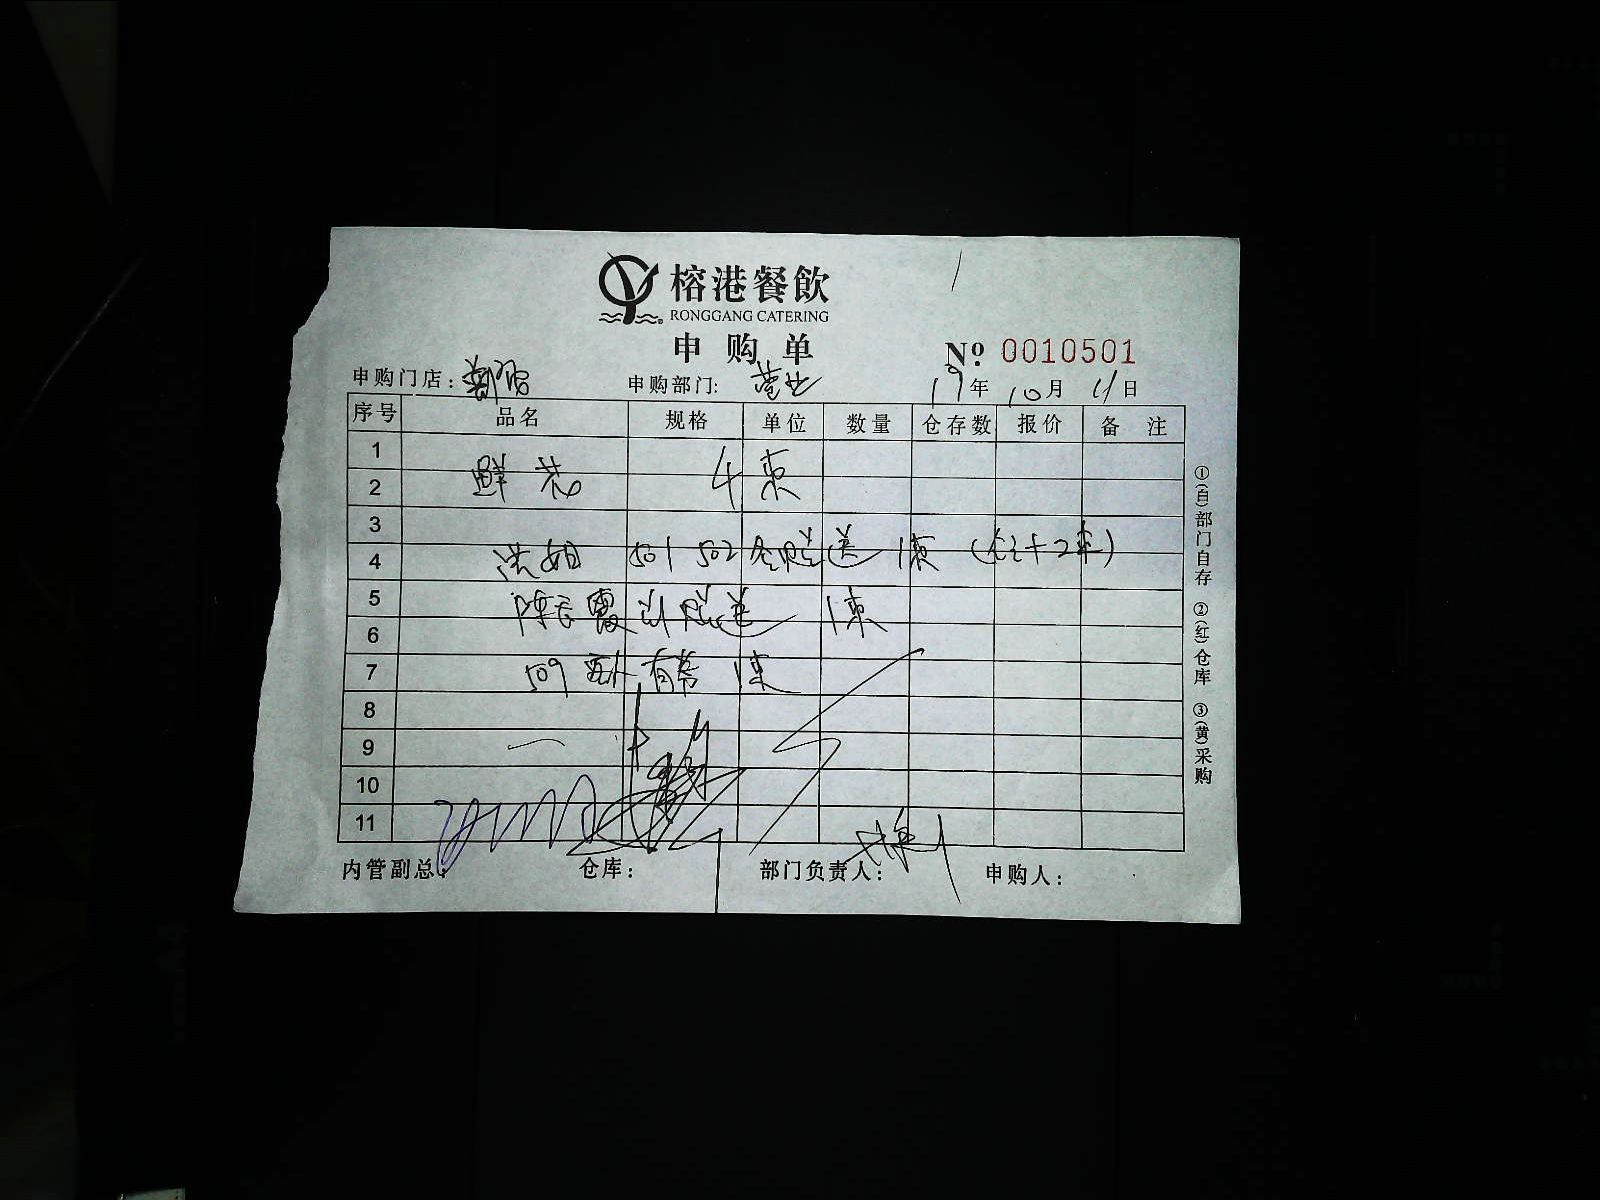 榕港餐飲
RONGGANG CATERING
申购单
№ 0010501
申购门店: 申购部门: 营业 19年 10月 11日
序号 品名 规格 单位 数量 仓存数 报价 备注
1
2 鲜花 4束
3
4 洪姐 501 502 送 1束
5 陈 霞 送 1束
6
7 509 1束
8
9
10
11
内管副总: 仓库: 部门负责人: 申购人:
①(白)部门自存 ②(红)仓库 ③(黄)采购